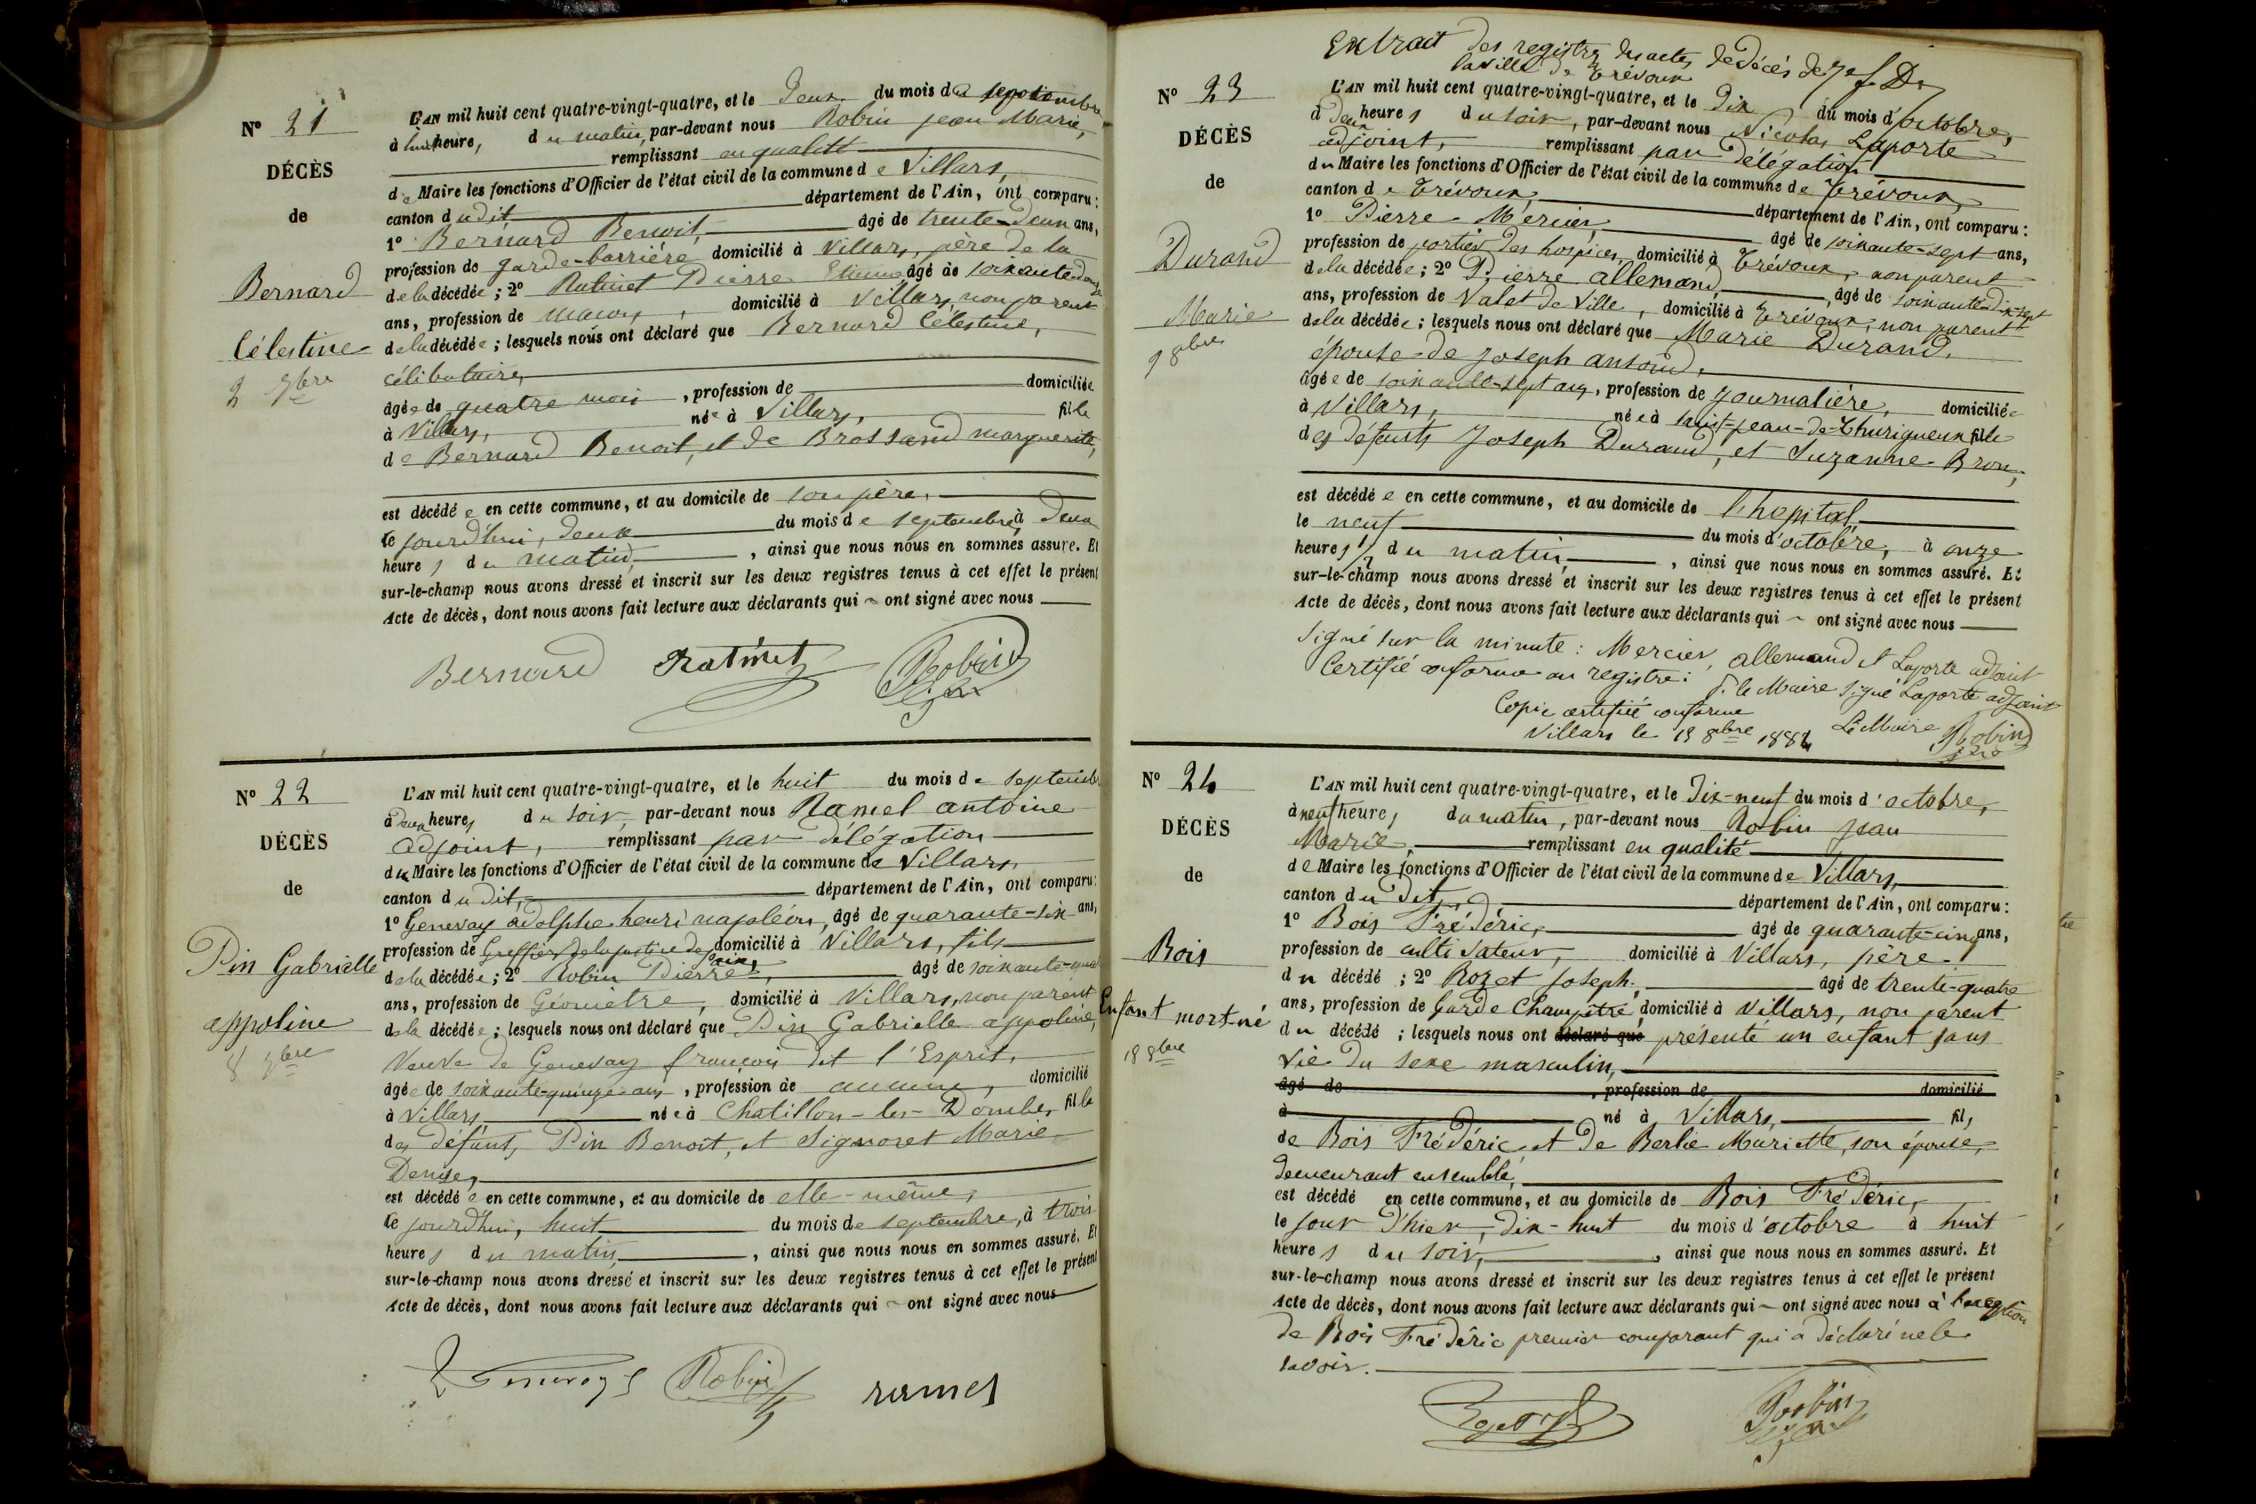 N° 21
DÉCÈS
de
Bernard
Célestine
2 7bre
L'AN mil huit cent quatre-vingt-quatre, et le Deux du mois de septembre
à huit heures du matin, par-devant nous Robin jean Marie,
remplissant en qualité
de Maire les fonctions d'Officier de l'état civil de la commune de Villars,
canton dudit, département de l'Ain, ont comparu :
1° Bernard Benoit, âgé de trente-deux ans,
profession de garde-barrière domicilié à Villars, père de la
de la décédée ; 2° Ratinet Pierre Etienne âgé de soixante-douze
ans, profession de maçon, domicilié à Villars, non parent
de la décédée ; lesquels nous ont déclaré que Bernard Célestine,
célibataire,
âgée de quatre mois, profession de domiciliée
à Villars, née à Villars, fille
de Bernard Benoit, et de Brossand marguerite,
est décédée en cette commune, et au domicile de son père,
le jourd'hui, deux du mois de septembre, à deux
heures du matin, ainsi que nous nous en sommes assuré. Et
sur-le-champ nous avons dressé et inscrit sur les deux registres tenus à cet effet le présent
Acte de décès, dont nous avons fait lecture aux déclarants qui ont signé avec nous
Bernard Ratinet Robin
N° 22
DÉCÈS
de
Pin Gabrielle
appoline
8 7bre
L'AN mil huit cent quatre-vingt-quatre, et le huit du mois de septembre
à deux heures du soir, par-devant nous Ramel antoine
adjoint, remplissant par délégation
du Maire les fonctions d'Officier de l'état civil de la commune de Villars,
canton dudit, département de l'Ain, ont comparu :
1° Genevay adolphe henri napoléon, âgé de quarante-six ans,
profession de Greffier de la justice de paix, domicilié à Villars, fils
de la décédée ; 2° Robin Pierre, âgé de soixante-quatre
ans, profession de Géomètre, domicilié à Villars, non parent
de la décédée ; lesquels nous ont déclaré que Pin Gabrielle appoline,
Veuve de Genevay françois dit l'Esprit,
âgée de soixante-quinze ans, profession de aucune, domicilié
à Villars née à Chatillon-les-Dombes, fille
des défunts Pin Benoit, et Signoret Marie
Denise,
est décédée en cette commune, et au domicile de elle-même,
le jourd'hui, huit du mois de septembre, à trois
heures du matin, ainsi que nous nous en sommes assuré. Et
sur-le-champ nous avons dressé et inscrit sur les deux registres tenus à cet effet le présent
Acte de décès, dont nous avons fait lecture aux déclarants qui ont signé avec nous
Genevay Robin ramel
Extrait des registres des actes de décès de
la ville de Trévoux
N° 23
DÉCÈS
de
Durand
Marie
9 8bre
L'AN mil huit cent quatre-vingt-quatre, et le Dix du mois d'octobre,
à deux heures du soir, par-devant nous Nicolas Laporte
adjoint, remplissant par délégation
du Maire les fonctions d'Officier de l'état civil de la commune de Trévoux,
canton de Trévoux, département de l'Ain, ont comparu :
1° Pierre Mercier, âgé de soixante-sept ans,
profession de portier des hospices, domicilié à Trévoux, non parent
de la décédée ; 2° Pierre allemand, âgé de soixante-dix-sept
ans, profession de Valet de Ville, domicilié à Trévoux, non parent
de la décédée ; lesquels nous ont déclaré que Marie Durand,
épouse de joseph ansoud,
âgée de soixante-sept ans, profession de journalière, domiciliée
à Villars, née à saint-jean-de-Thurigneux fille
des défunts Joseph Durand, et Suzanne Bron,
est décédée en cette commune, et au domicile de l'hopital
le neuf du mois d'octobre, à onze
heures 1/2 du matin, ainsi que nous nous en sommes assuré. Et
sur-le-champ nous avons dressé et inscrit sur les deux registres tenus à cet effet le présent
Acte de décès, dont nous avons fait lecture aux déclarants qui ont signé avec nous
Signé sur la minute : Mercier, allemand et Laporte adjoint
Certifié conforme au registre : P. le Maire signé Laporte adjoint
Copie certifiée conforme
Villars le 15 8bre 1884 Le Maire Robin
N° 24
DÉCÈS
de
Bois
Enfant mort-né
18 8bre
L'AN mil huit cent quatre-vingt-quatre, et le Dix-neuf du mois d'octobre,
à neuf heures du matin, par-devant nous Robin jean
Marie, remplissant en qualité
de Maire les fonctions d'Officier de l'état civil de la commune de Villars,
canton du Dit, département de l'Ain, ont comparu :
1° Bois Frédéric, âgé de quarante-cinq ans,
profession de cultivateur, domicilié à Villars, père
du décédé ; 2° Rozet joseph, âgé de trente-quatre
ans, profession de Garde Champêtre, domicilié à Villars, non parent
du décédé ; lesquels nous ont déclaré que présenté un enfant sans
vie du sexe masculin,
âgé de , profession de domicilié
à né à Villars, fils
de Bois Frédéric, et de Berlie Mariette, son épouse,
demeurant ensemble,
est décédé en cette commune, et au domicile de Bois Frédéric,
le jour d'hier, dix-huit du mois d'octobre à huit
heures du soir, ainsi que nous nous en sommes assuré. Et
sur-le-champ nous avons dressé et inscrit sur les deux registres tenus à cet effet le présent
Acte de décès, dont nous avons fait lecture aux déclarants qui ont signé avec nous à l'exception
de Bois Frédéric premier comparant qui a déclaré ne le
savoir.
Rozet Robin